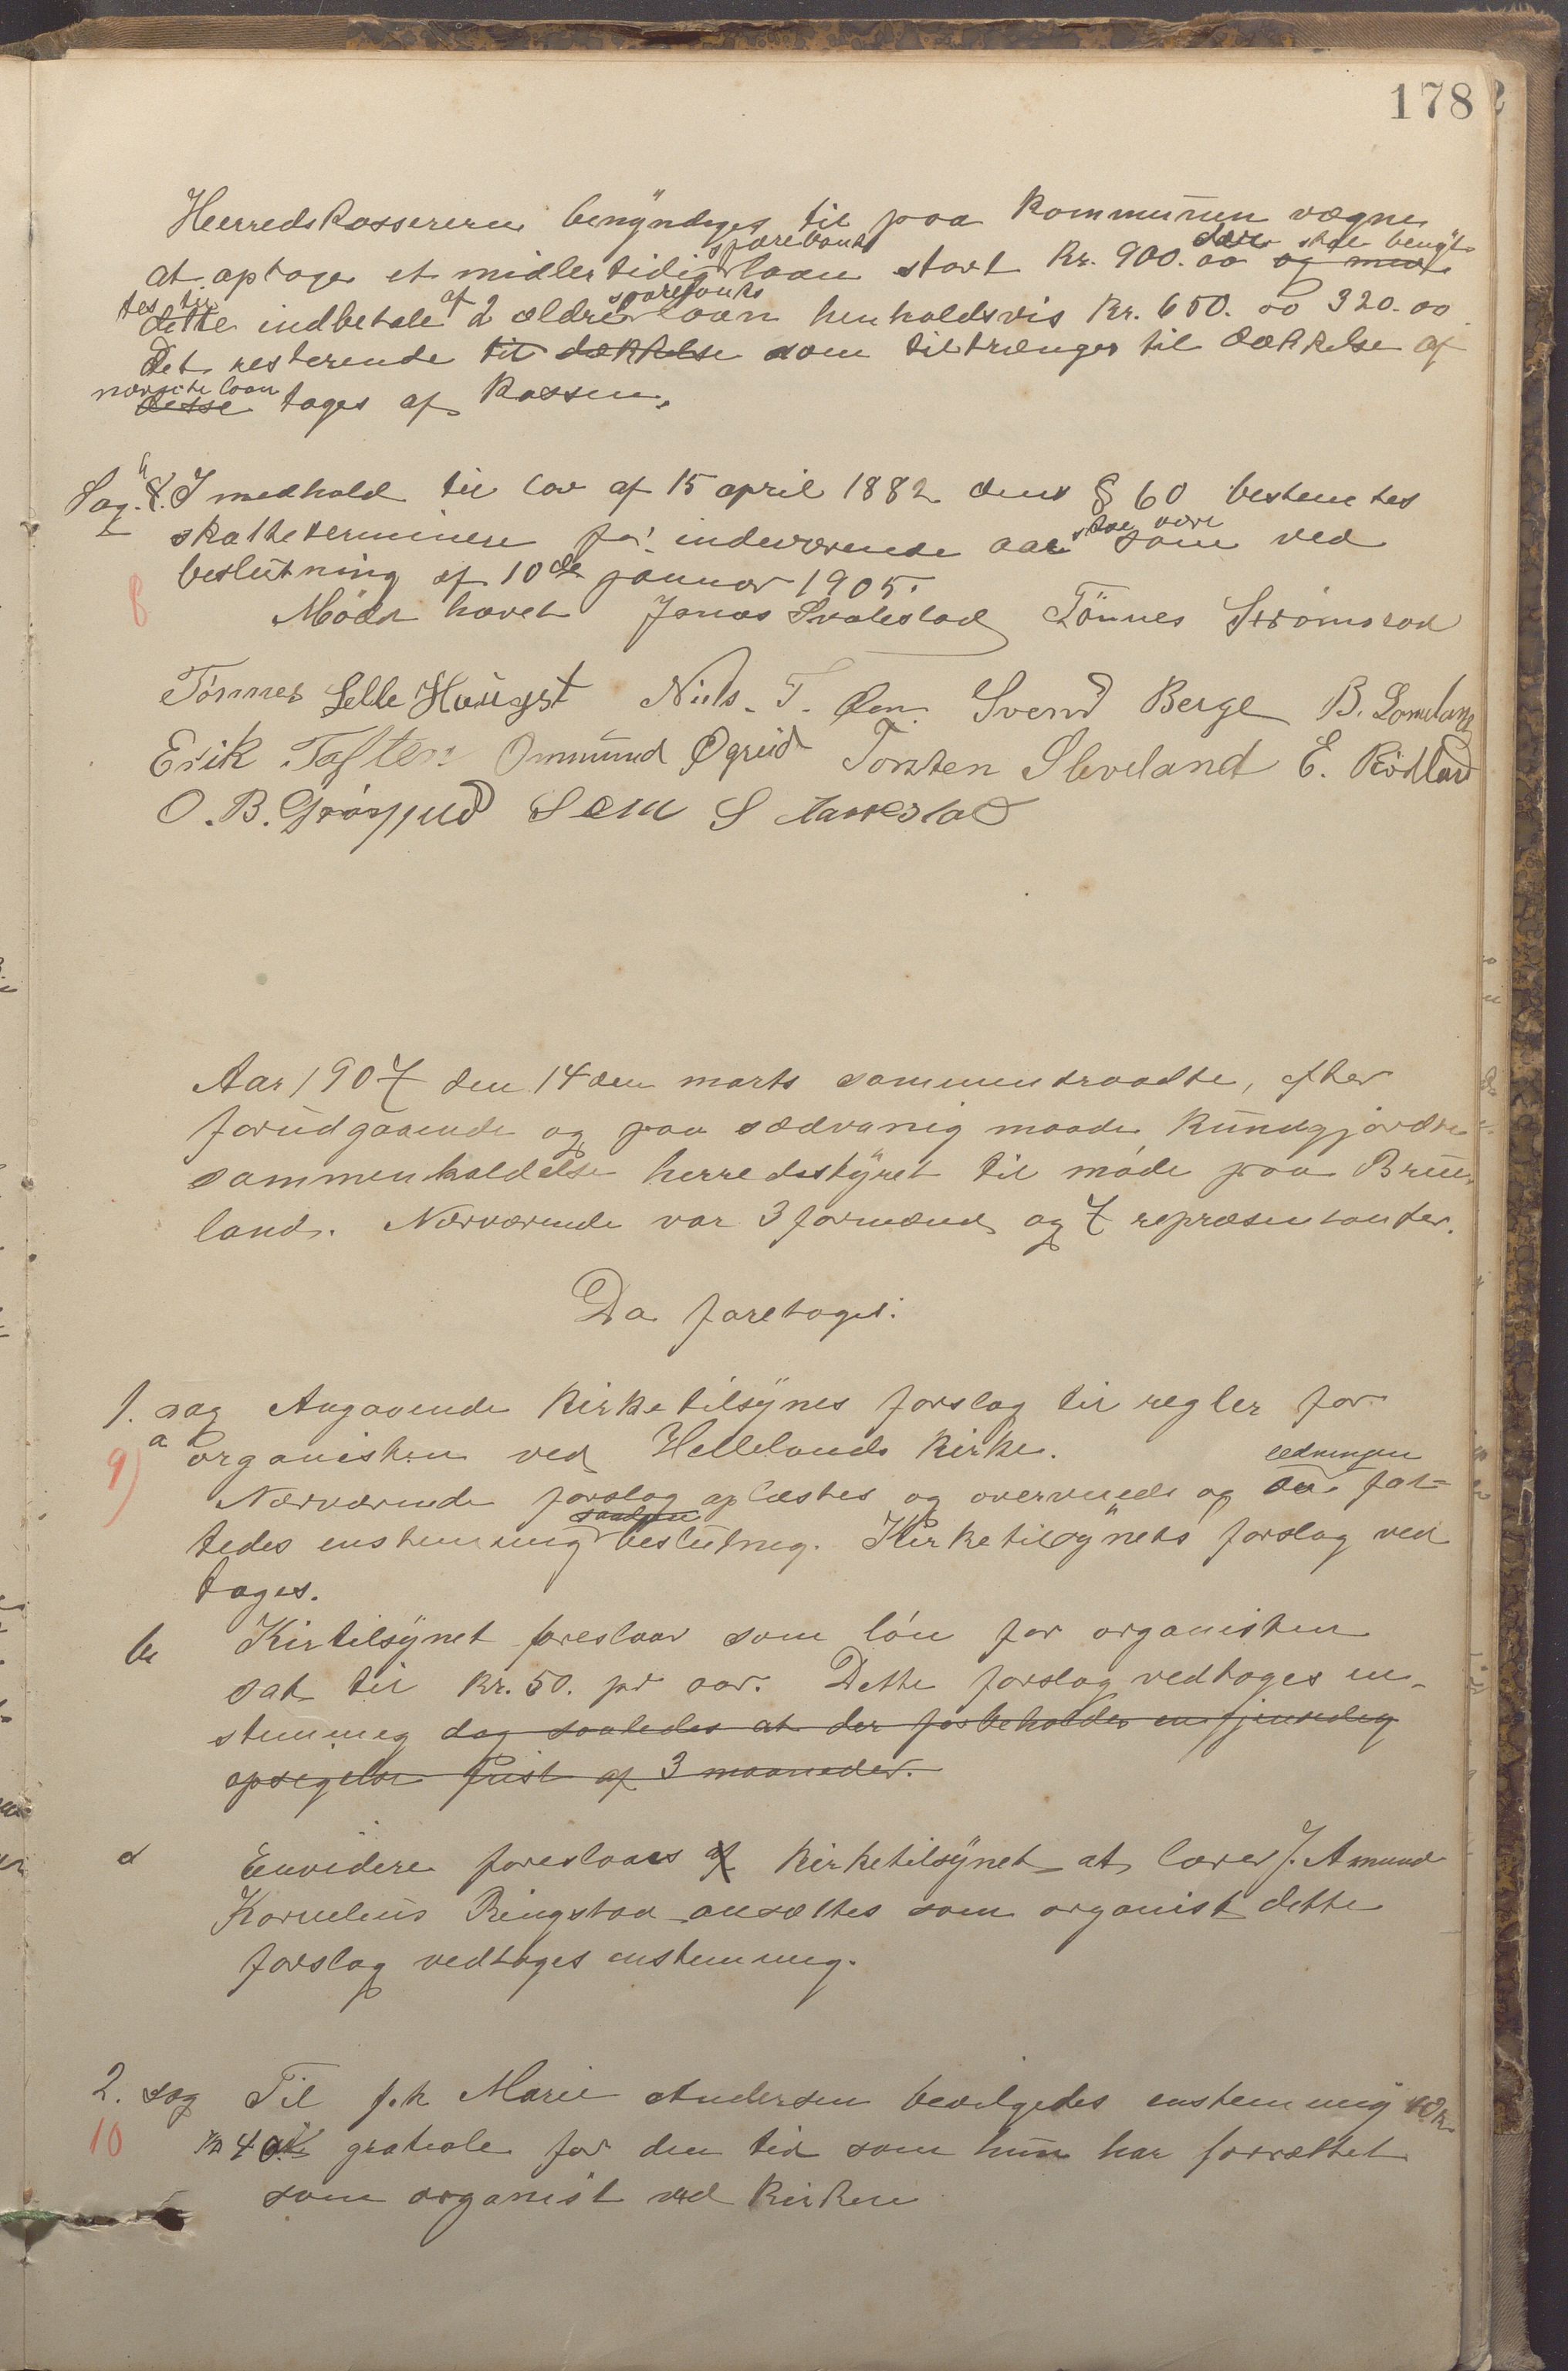 178
Herredskassereren bemyndiges til paa kommunen vægne
sparebank der skal benyt-
at optage et midlertidig laan stort Kr. 900.00 og med
tes til af sparebanks
dette indbetale 2 ældre laan henholdsvis Kr. 650.00 320.00
Det resterende til dækkelse som tiltrænges til dækkelse af
nævnte laan
disse tages af kassen.
Sag. 8. I medhold til lov af 15 april 1882 dens § 60 bestemtes
skal være
skatteterminene for indeværende aar som ved
beslutning af 10de januar 1905.
8
Møde hævet Jonas Svalestad Tönnes Strömstad
Tönnes Selle Haugst Niels. T. Øen. Svend Berge B. Lomeland
Erik Toften Ommund Øgreid Torsten Sleveland E. Rödland
O. B. Gröspud Sem S
Aar 1907 den 14den marts sammentraadte, efter
forudgaaende og paa sædvanig maade kundgjordte
sammenkaldelse herredsstyret til møde paa Brue-
land. Nærværende var 3 formænd og 7 repræsentanter.
Da foretoges:
1. sag Angaaende kirketilsynes forslag til regler for
a organisten ved Hellelands kirke.
9)
ledningen
Nærværende forslag oplæstes og overveiedes og der fat-
saadan
tedes enstemmig beslutnig. Kirketilsynets forslag ved
tages.
b Kirtilsynet foreslaar som løn for organisten
sat til kr. 50. pr aar. Dette forslag vedtoges en-
stemmeg dog saaledes at der forbeholdes en gjensedig
opsigelse frist af 3 maaneder.
c Envidere foreslaaes af kirketilsynet at lærer J. Amund
Kornelius Ringstad ansættes som organist dette
forslag vedtoges enstemmig.
2. sag Til frk Marie Andersen bevilgedes enstemmig
10 kr 40 gratiale for den tid som hun har forrættet
som organist ved kirken